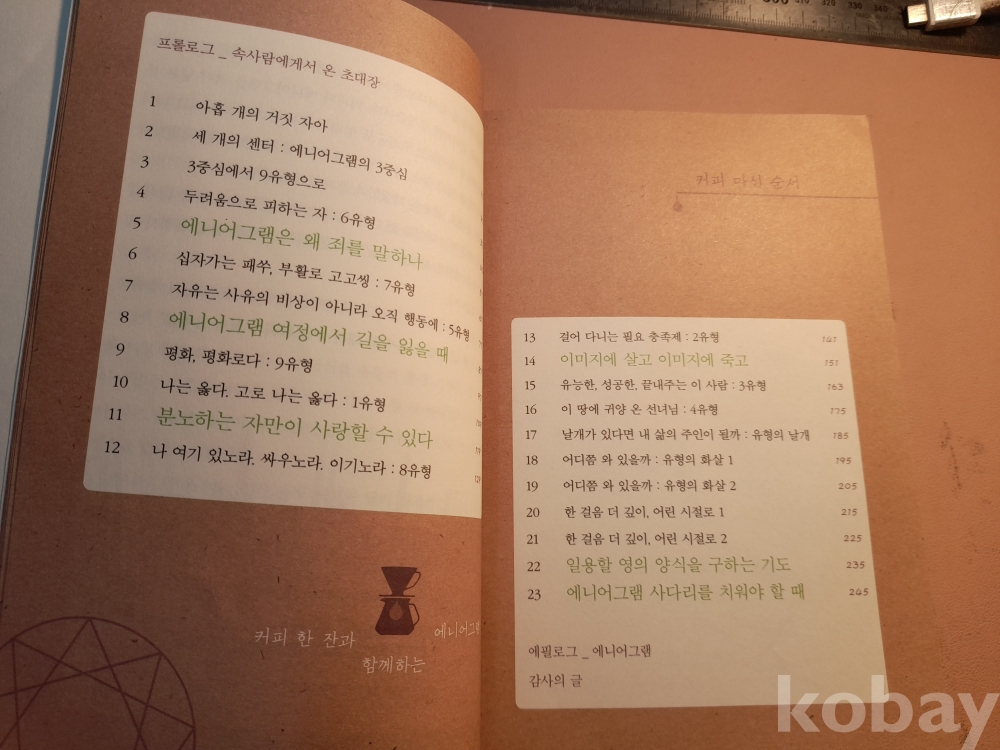 프롤로그 _ 속사람에게서 온 초대장
1 아홉 개의 거짓 자아
2 세 개의 센터 : 에니어그램의 3중심
3 3중심에서 9유형으로
4 두려움으로 피하는 자 : 6유형
5 에니어그램은 왜 죄를 말하나
6 십자가는 패쑤, 부활로 고고씽 : 7유형
7 자유는 사유의 비상이 아니라 오직 행동에 : 5유형
8 에니어그램 여정에서 길을 잃을 때
9 평화, 평화로다 : 9유형
10 나는 옳다. 고로 나는 옳다 : 1유형
11 분노하는 자만이 사랑할 수 있다
12 나 여기 있노라. 싸우노라. 이기노라 : 8유형
커피 한 잔과
함께하는
에니어그램
커피 마신 순서
13 걸어 다니는 필요 충족제 : 2유형 141
14 이미지에 살고 이미지에 죽고 151
15 유능한, 성공한, 끝내주는 이 사람 : 3유형 163
16 이 땅에 귀양 온 선녀님 : 4유형 175
17 날개가 있다면 내 삶의 주인이 될까 : 유형의 날개 185
18 어디쯤 와 있을까 : 유형의 화살 1 195
19 어디쯤 와 있을까 : 유형의 화살 2 205
20 한 걸음 더 깊이, 어린 시절로 1 215
21 한 걸음 더 깊이, 어린 시절로 2 225
22 일용할 영의 양식을 구하는 기도 235
23 에니어그램 사다리를 치워야 할 때 245
에필로그 _ 에니어그램
감사의 글
kobay